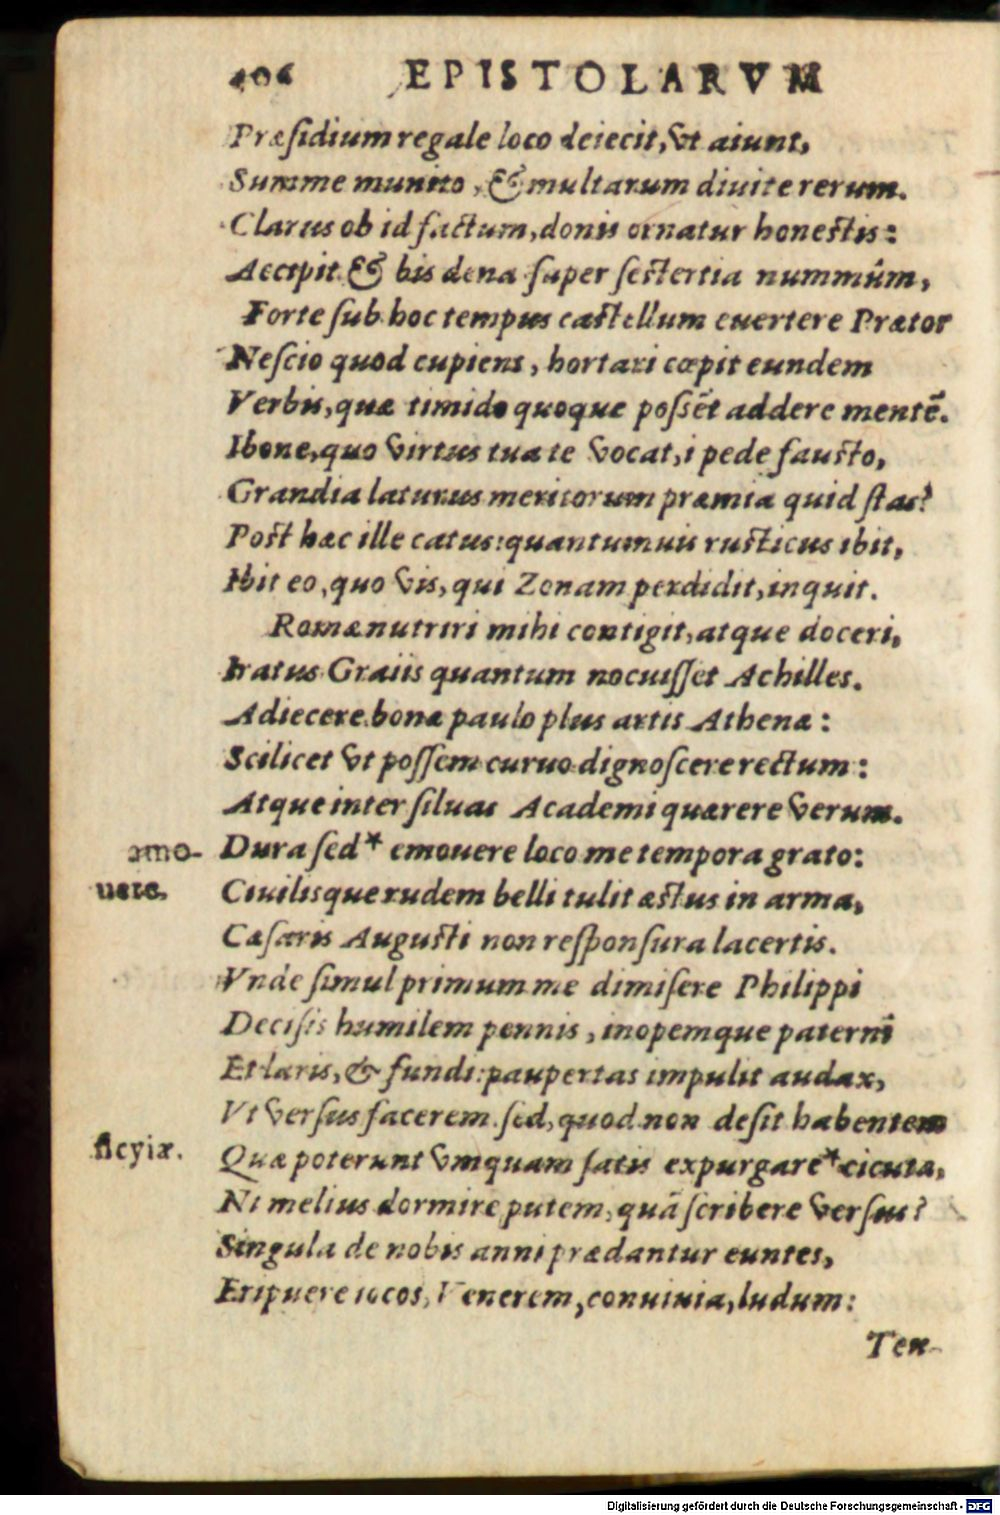 406 EPISTOLARVM
Præsidium regale loco deiecit, vt aiunt,
Summe munito, & multarum diuite rerum.
Clarus ob id factum, donis ornatur honestis:
Accipit & bis dena super sestertia nummûm,
Forte sub hoc tempus castellum euertere Prætor
Nescio quod cupiens, hortari cœpit eundem
Verbis, quæ timido quoque possēt addere mentē.
I bone, quo virtus tua te vocat, i pede fausto,
Grandia laturus meritorum præmia quid stas?
Post hæc ille catus: quantumuis rusticus ibit,
Ibit eo, quo vis, qui Zonam perdidit, inquit.
Romæ nutriri mihi contigit, atque doceri,
Iratus Graiis quantum nocuisset Achilles.
Adiecere bonæ paulo plus artis Athenæ:
Scilicet vt possem curuo dignoscere rectum:
Atque inter siluas Academi quærere verum.
amo- Dura sed* emouere loco me tempora grato:
uere. Ciuilisque rudem belli tulit æstus in arma,
Cæsaris Augusti non responsura lacertis.
Vnde simul primum me dimisere Philippi
Decisis humilem pennis, inopemque paterni
Et laris, & fundi: paupertas impulit audax,
Vt versus facerem. sed, quod non desit habentem
ficyiæ. Quæ poterunt vmquam satis expurgare* cicuta,
Ni melius dormire putem, quā scribere versus?
Singula de nobis anni prædantur euntes,
Eripuere iocos, Venerem, conuiuia, ludum:
Ten-
Digitalisierung gefördert durch die Deutsche Forschungsgemeinschaft - DFG